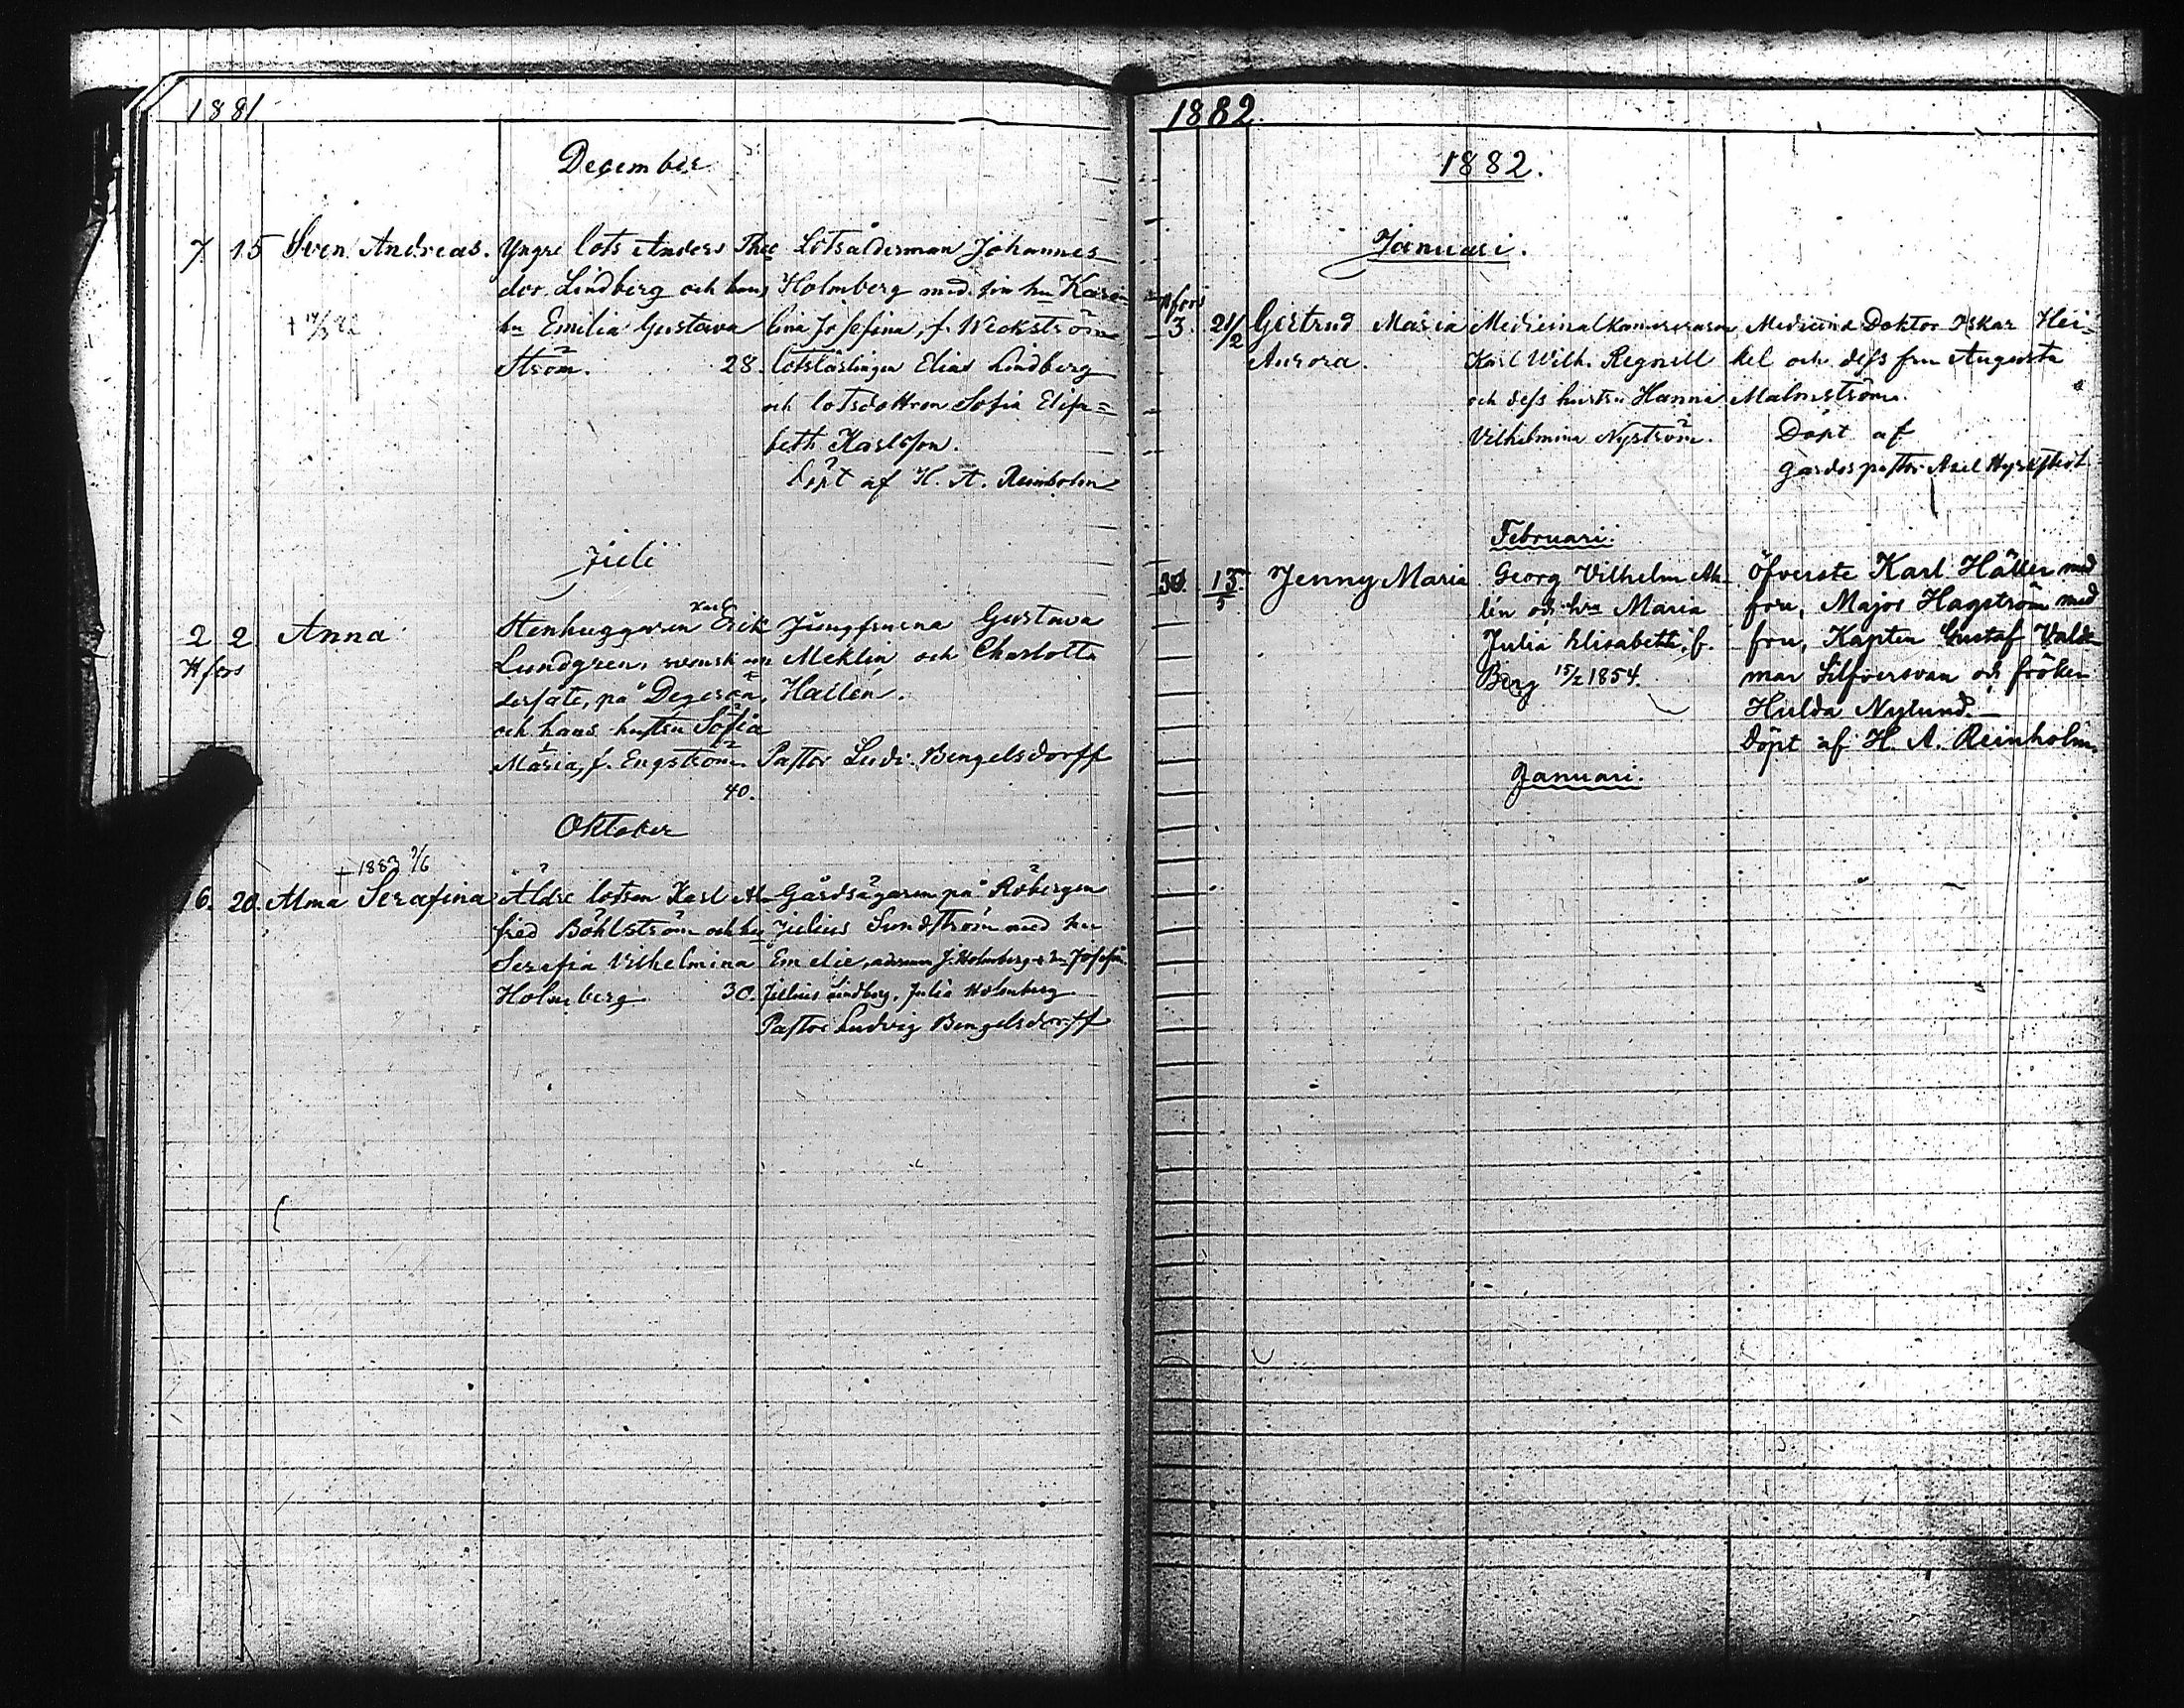 1881
December
7. 15 Sven Andreas. Yngre lots Anders Theo Lotsålderman Johannes
dor Lindberg och hans Holmberg med sin hu Karo-
hu Emilia Gustava lina Josefina, f. Weckström
Ström. 28. lotslärlingen Elias Lindberg
och lotsdottren Sofia Elisa=
beth Karlsson.
Döpt af H. A. Reinholm
Juli
2 2 Anna Stenhuggaren Karl Erik Jungfruerna Gustava
Hfors Lundgren, svensk un Meklin och Charlotta
dersåte, på Degerön, Hallén.
och hans hustru Sofia
Maria, f. Engström. Pastor Ludv. Bengelsdorff
40.
Oktober
+ 1883 2/6
6. 20. Alma Serafina Äldre lotsen Karl Al- Gårdsägaren på Röbergen
fred Böhlström och hu Julius Sundström med hu
Serafia Vilhelmina Emelie, J. Holmberg Josefin
Holmberg 30. Julius Lindberg, Julia Holmberg
Pastor Ludvig Bengelsdorff
1882.
1882.
Januari.
Hfors
3. 21/2 Gertrud Maria Medicinalkamreraren Medicine Doktor Oskar Hei=
Aurora. Karl Wilh. Regnell kel och dess fru Augusta
och dess hustru Hanna Malmström.
Vilhelmina Nyström. Döpt af
gardespastor Axel
Februari.
30. 13/5 Jenny Maria Georg Vilhelm Ah- öfverste Karl Häller med
lén och hru Maria fru, Major Hagström med
Julia Elisabeth, f. fru, Kapten Gustaf Valde
Berg 15/2 1854. mar Silfversvan och fröken
Hulda Nylund.
Döpt af H. A. Reinholm.
Januari.